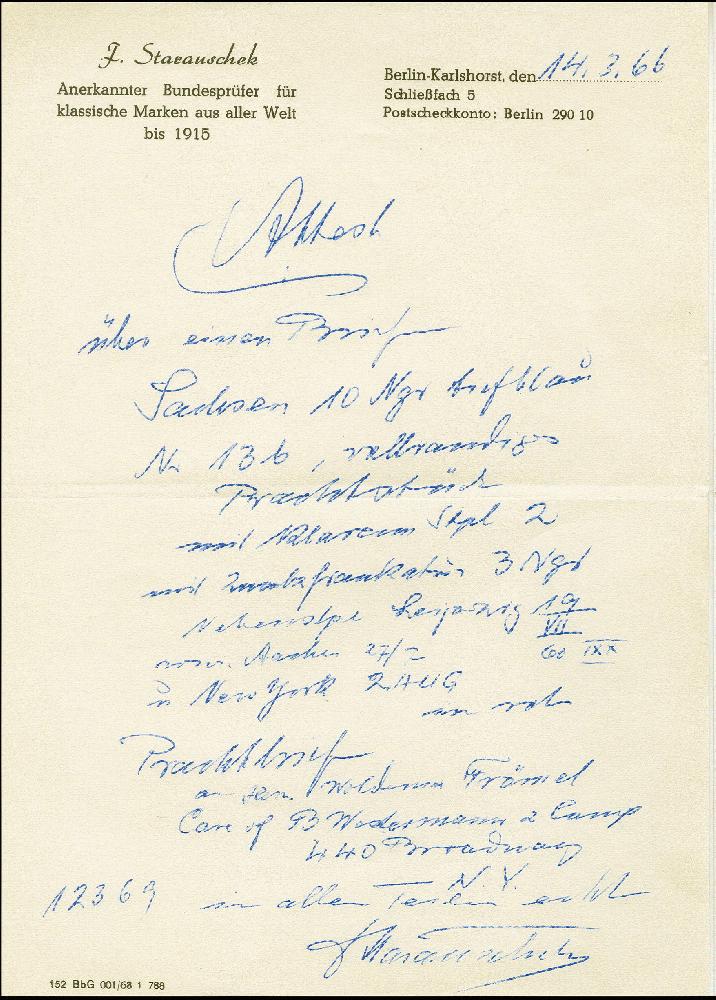 J. Starauschek
Anerkannter Bundesprüfer für
klassische Marken aus aller Welt
bis 1915
Berlin-Karlshorst, den 14. 3. 66
Schließfach 5
Postscheckkonto: Berlin 290 10
Attest
über einen Brief
Sachsen 10 Ngr tiefblau
Nr 13b, vollrandiges
Prachtstück
mit klarem Stpl 2
mit Zusatzfrankatur 3 Ngr
Nebenstpl Leipzig 19
VII
60 IXX
Aachen 27/
u New York 2 AUG
an
Prachtbrief
a Hrn. Woldemar Frömel
Care of B Wedermann & Comp
440 Broadway
N. Y.
12369 in allen Teilen echt
J Starauschek
152 BbG 001/68 1 788